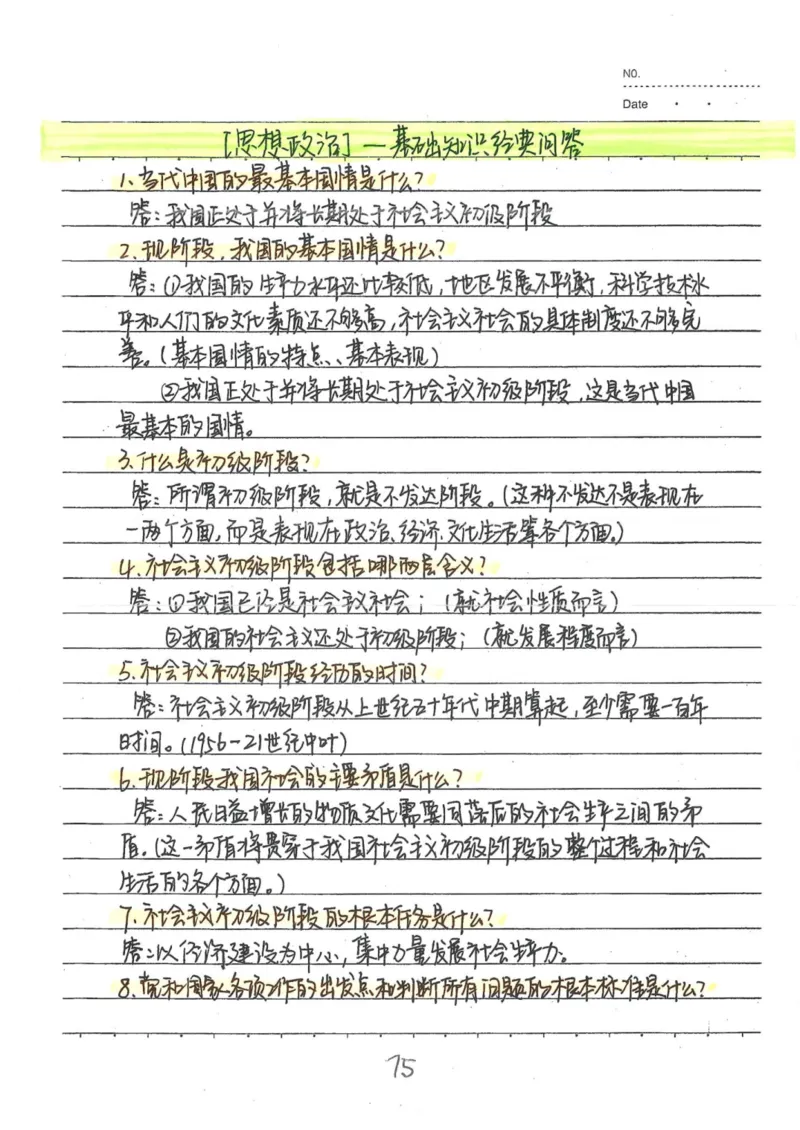 NO.
Date
[思想政治]—基础知识经典问答
1、当代中国的最基本国情是什么?
答:我国正处于并将长期处于社会主义初级阶段
2、现阶段,我国的基本国情是什么?
答:①我国的生产力水平还比较低,地区发展不平衡,科学技术水
平和人们的文化素质还不够高,社会主义社会的具体制度还不够完
善。(基本国情的特点、基本表现)
②我国正处于并将长期处于社会主义初级阶段,这是当代中国
最基本的国情。
3、什么是初级阶段?
答:所谓初级阶段,就是不发达阶段。(这种不发达不是表现在
一两个方面,而是表现在政治、经济、文化生活等各个方面。)
4、社会主义初级阶段包括哪两层含义?
答:①我国已经是社会主义社会;(就社会性质而言)
②我国的社会主义还处于初级阶段;(就发展程度而言)
5、社会主义初级阶段经历的时间?
答:社会主义初级阶段从上世纪五十年代中期算起,至少需要一百年
时间。(1956-21世纪中叶)
6、现阶段我国社会的主要矛盾是什么?
答:人民日益增长的物质文化需要同落后的社会生产之间的矛
盾。(这一矛盾将贯穿于我国社会主义初级阶段的整个过程和社会
生活的各个方面。)
7、社会主义初级阶段的根本任务是什么?
答:以经济建设为中心,集中力量发展社会生产力。
8、党和国家各项工作的出发点和判断所有问题的根本标准是什么?
75